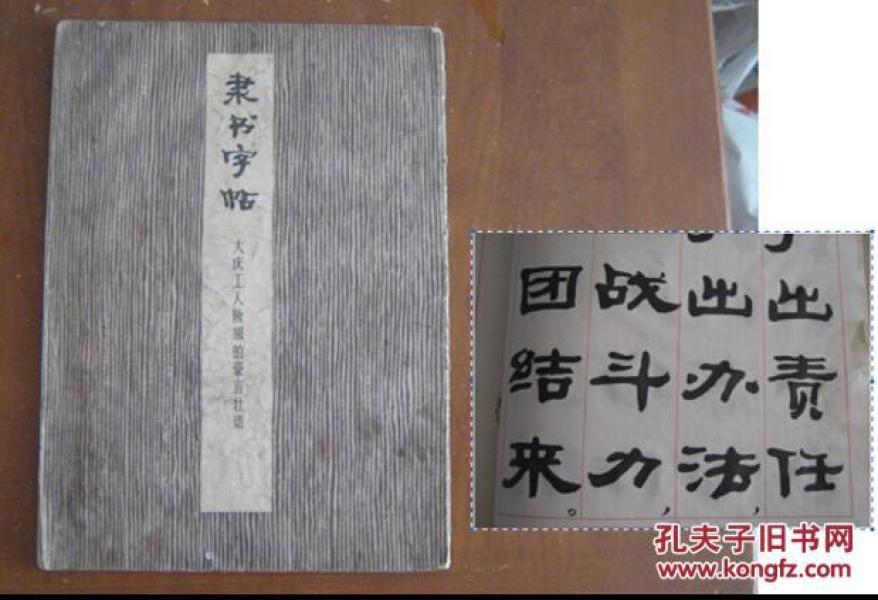 隶书字帖
大庆工人阶级的豪言壮语
出责任
出办法，
战斗力，
团结来。
孔夫子旧书网
www.kongfz.com